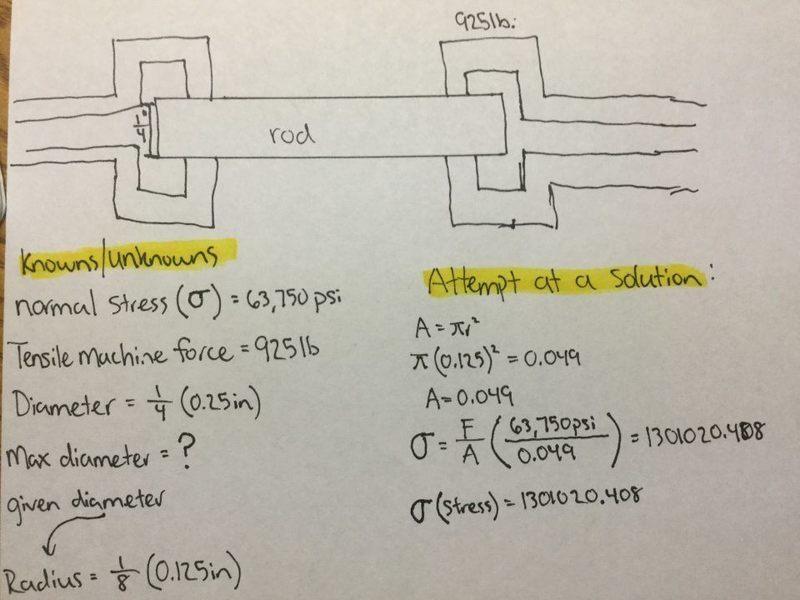 925lb.
1/4"
rod
Knowns/unknowns
normal stress (σ) = 63,750 psi
Tensile Machine force = 925lb
Diameter = 1/4 (0.25in)
Max diameter = ?
given diameter
Radius = 1/8 (0.125in)
Attempt at a solution:
A = πr²
π(0.125)² = 0.049
A = 0.049
σ = F/A (63,750psi/0.049) = 1301020.408
σ(stress) = 1301020.408